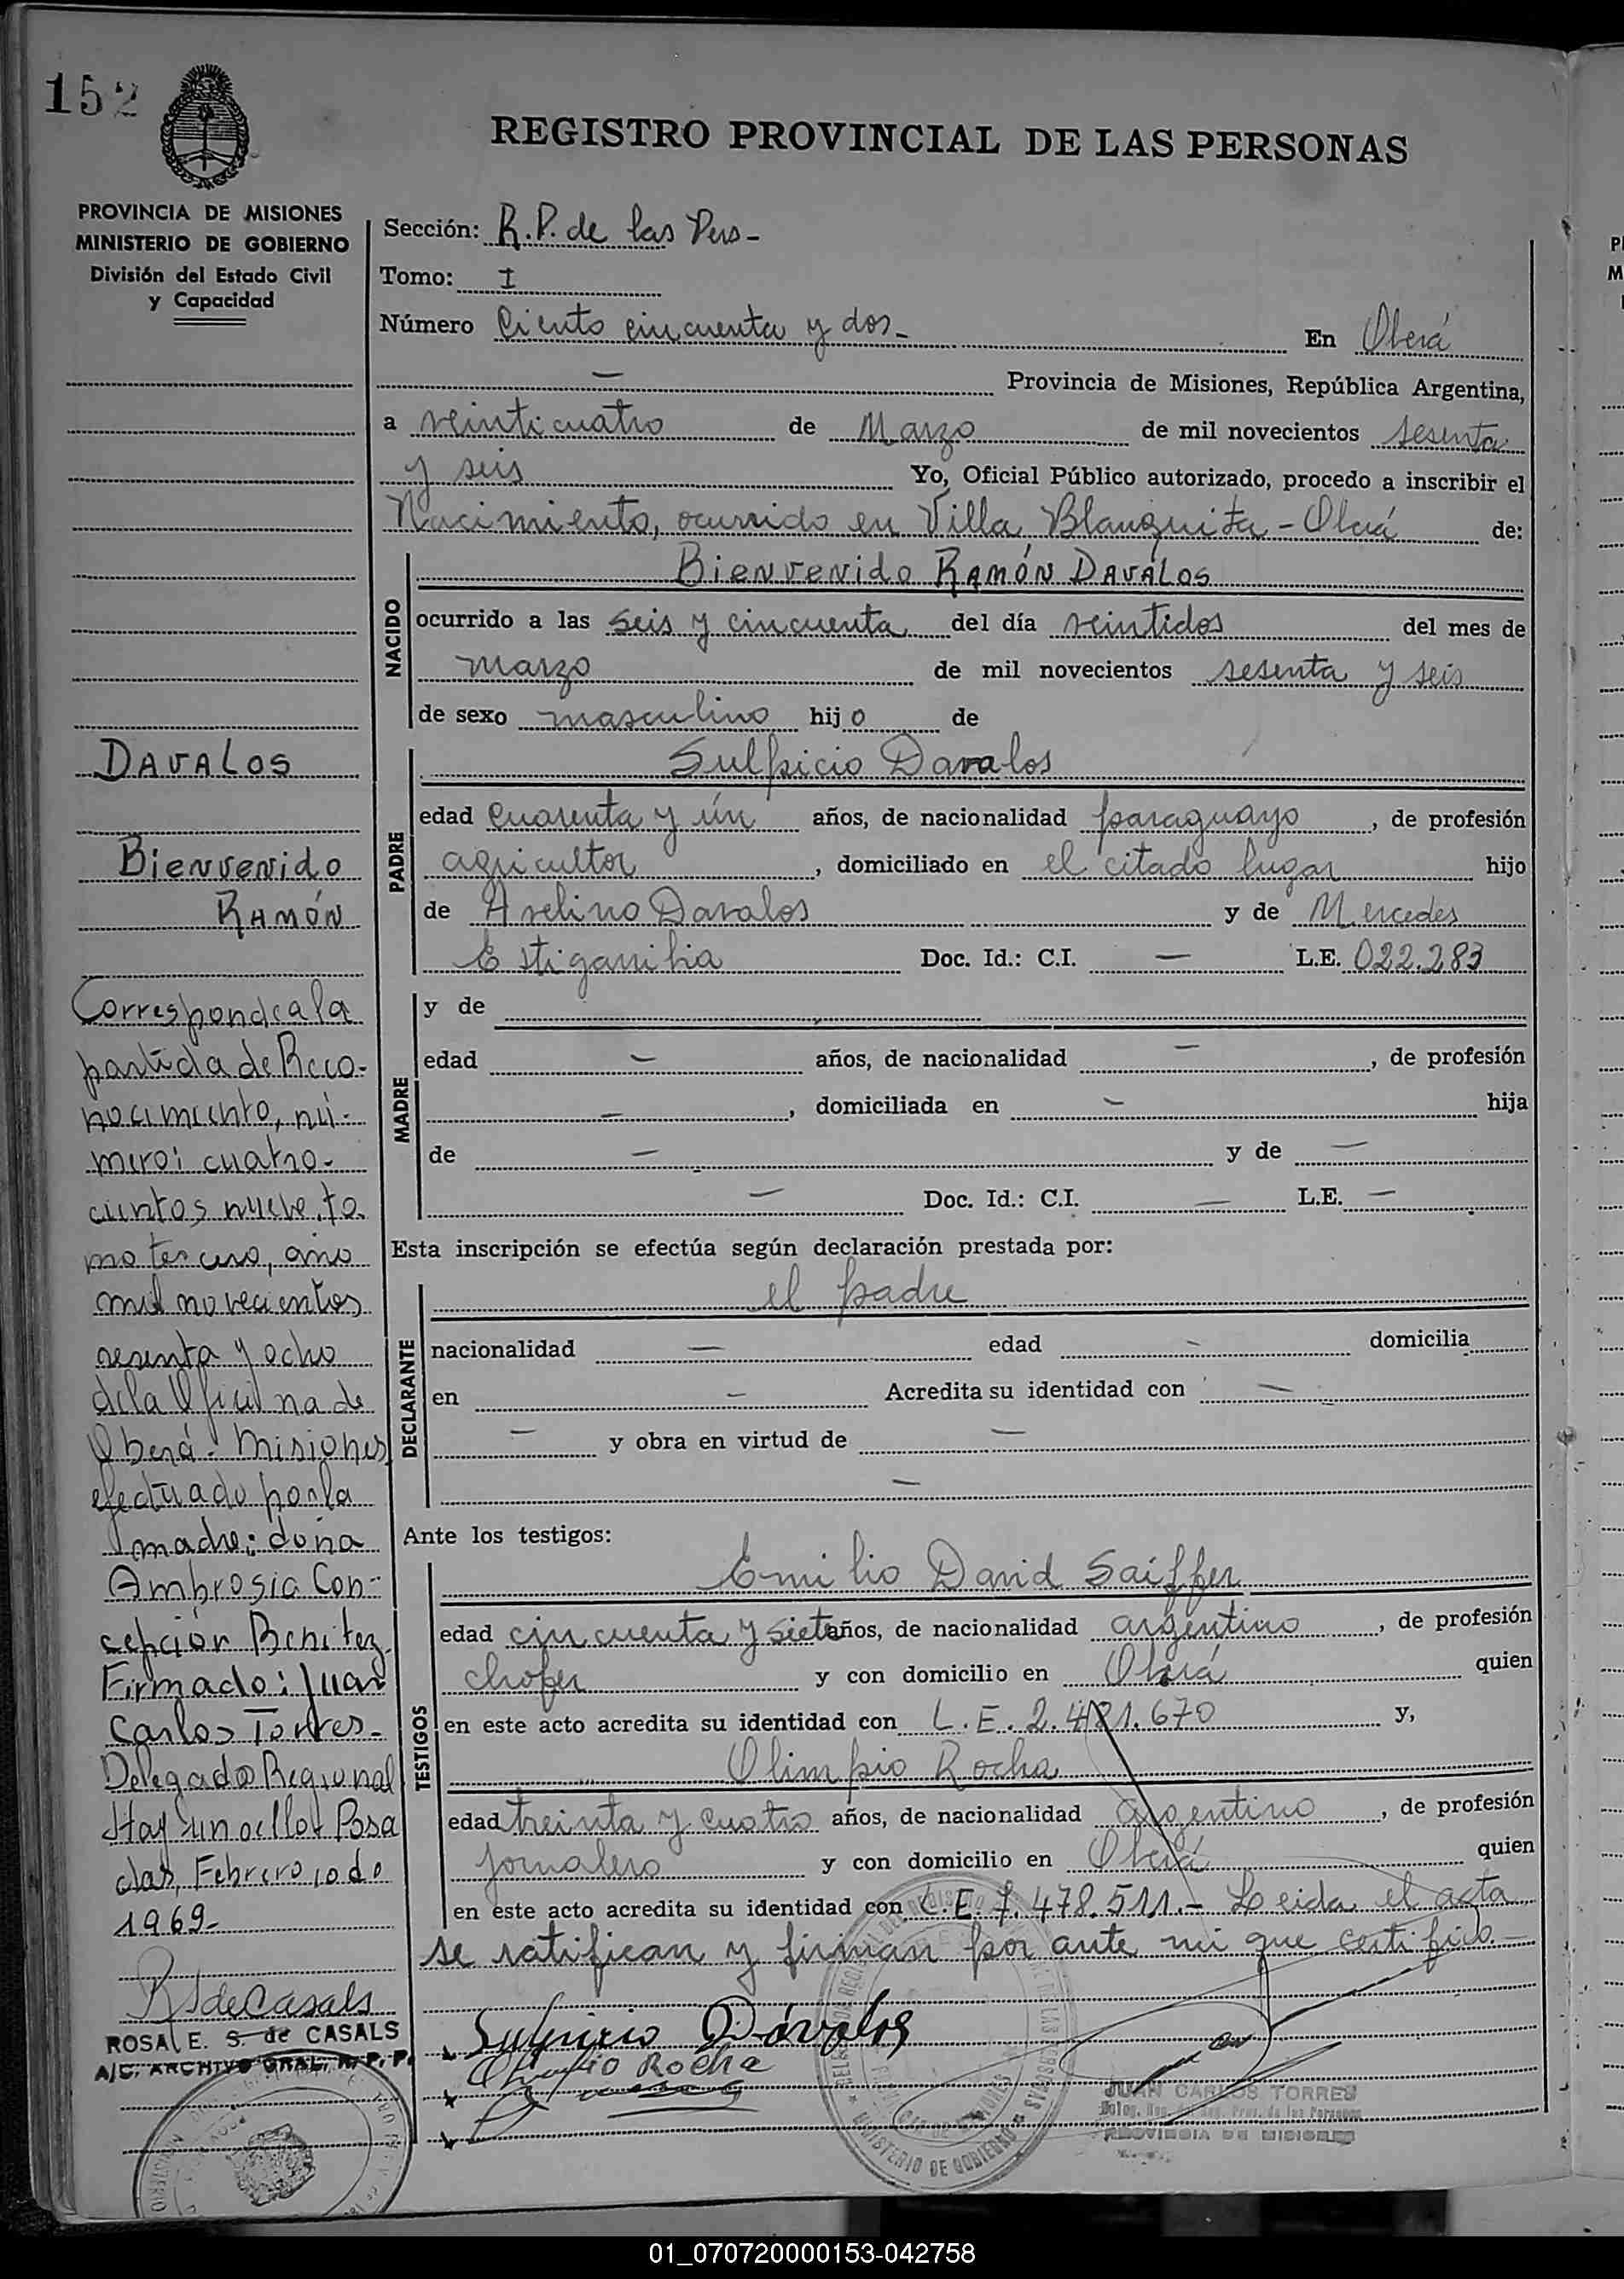 152
REGISTRO PROVINCIAL DE LAS PERSONAS
PROVINCIA DE MISIONES
MINISTERIO DE GOBIERNO
División del Estado Civil
y Capacidad
DAVALOS
Bienvenido
RAMÓN
Corresponde a la
partida de Reco-
nocimiento, nú-
mero: cuatro-
cientos nueve, to-
mo tercero, año
mil novecientos
sesenta y ocho
de la Oficina de
Oberá - Misiones
efectuado por la
madre: doña
Ambrosia Con-
cepción Benitez
Firmado: Juan
Carlos Torres-
Delegado Regional
Hay un sello Posa
das, Febrero 10 de
1969-
RSdeCasals
ROSA E. S. de CASALS
A/C. ARCHIVO GRAL. R. P. P.
Sección: R.P. de las Pers-
Tomo: I
Número Ciento cincuenta y dos- En Oberá
— Provincia de Misiones, República Argentina,
a veinticuatro de Marzo de mil novecientos sesenta
y seis Yo, Oficial Público autorizado, procedo a inscribir el
Nacimiento, ocurrido en Villa Blanquita - Oberá de:
NACIDO
Bienvenido RAMÓN DAVALOS
ocurrido a las seis y cincuenta del día veintidos del mes de
marzo de mil novecientos sesenta y seis
de sexo masculino hijo de
PADRE
Sulpicio Davalos
edad cuarenta y ún años, de nacionalidad paraguayo, de profesión
agricultor, domiciliado en el citado lugar hijo
de Avelino Davalos y de Mercedes
Estigarribia Doc. Id.: C.I. — L.E. 022.283
MADRE
y de
edad — años, de nacionalidad —, de profesión
—, domiciliada en — hija
de — y de —
— Doc. Id.: C.I. — L.E. —
Esta inscripción se efectúa según declaración prestada por:
DECLARANTE
el padre
nacionalidad — edad - domicilia
en — Acredita su identidad con —
— y obra en virtud de —
—
Ante los testigos:
TESTIGOS
Emilio David Saiffer
edad cincuenta y siete años, de nacionalidad argentino, de profesión
chofer y con domicilio en Oberá quien
en este acto acredita su identidad con L.E. 2.481.670 y,
Olimpio Rocha
edad treinta y cuatro años, de nacionalidad argentino, de profesión
jornalero y con domicilio en Oberá quien
en este acto acredita su identidad con L.E. 7.478.511.- Leida el acta
se ratifican y firman por ante mi que certifico-
Sulpicio Dávalos
Olimpio Rocha
JUAN CARLOS TORRES
PROVINCIA DE MISIONES
MINISTERIO DE GOBIERNO
01_070720000153-042758